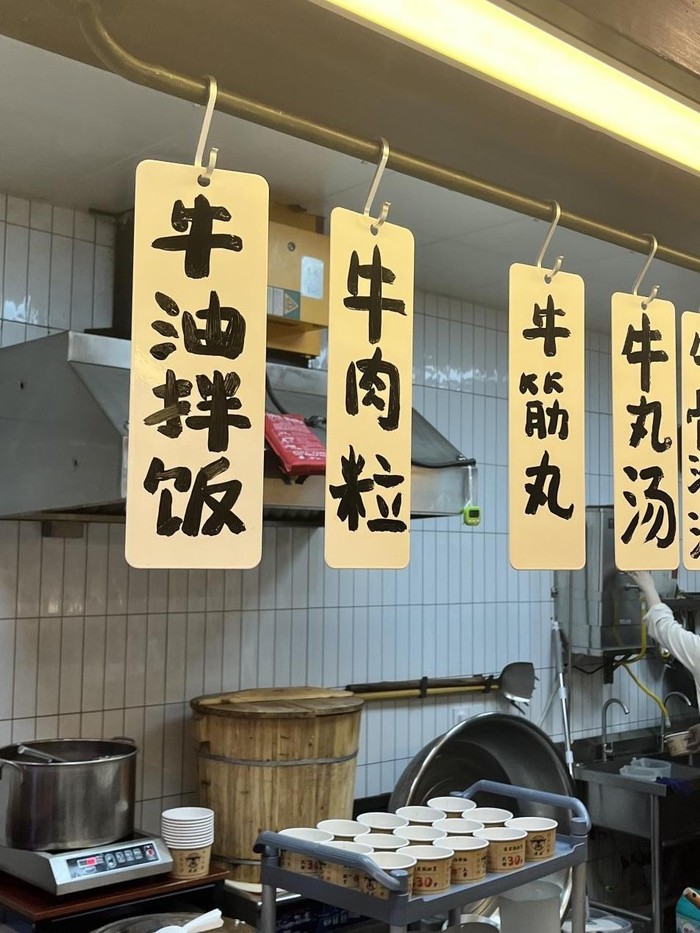 牛油拌饭
牛肉粒
牛筋丸
牛丸汤
30
30
30